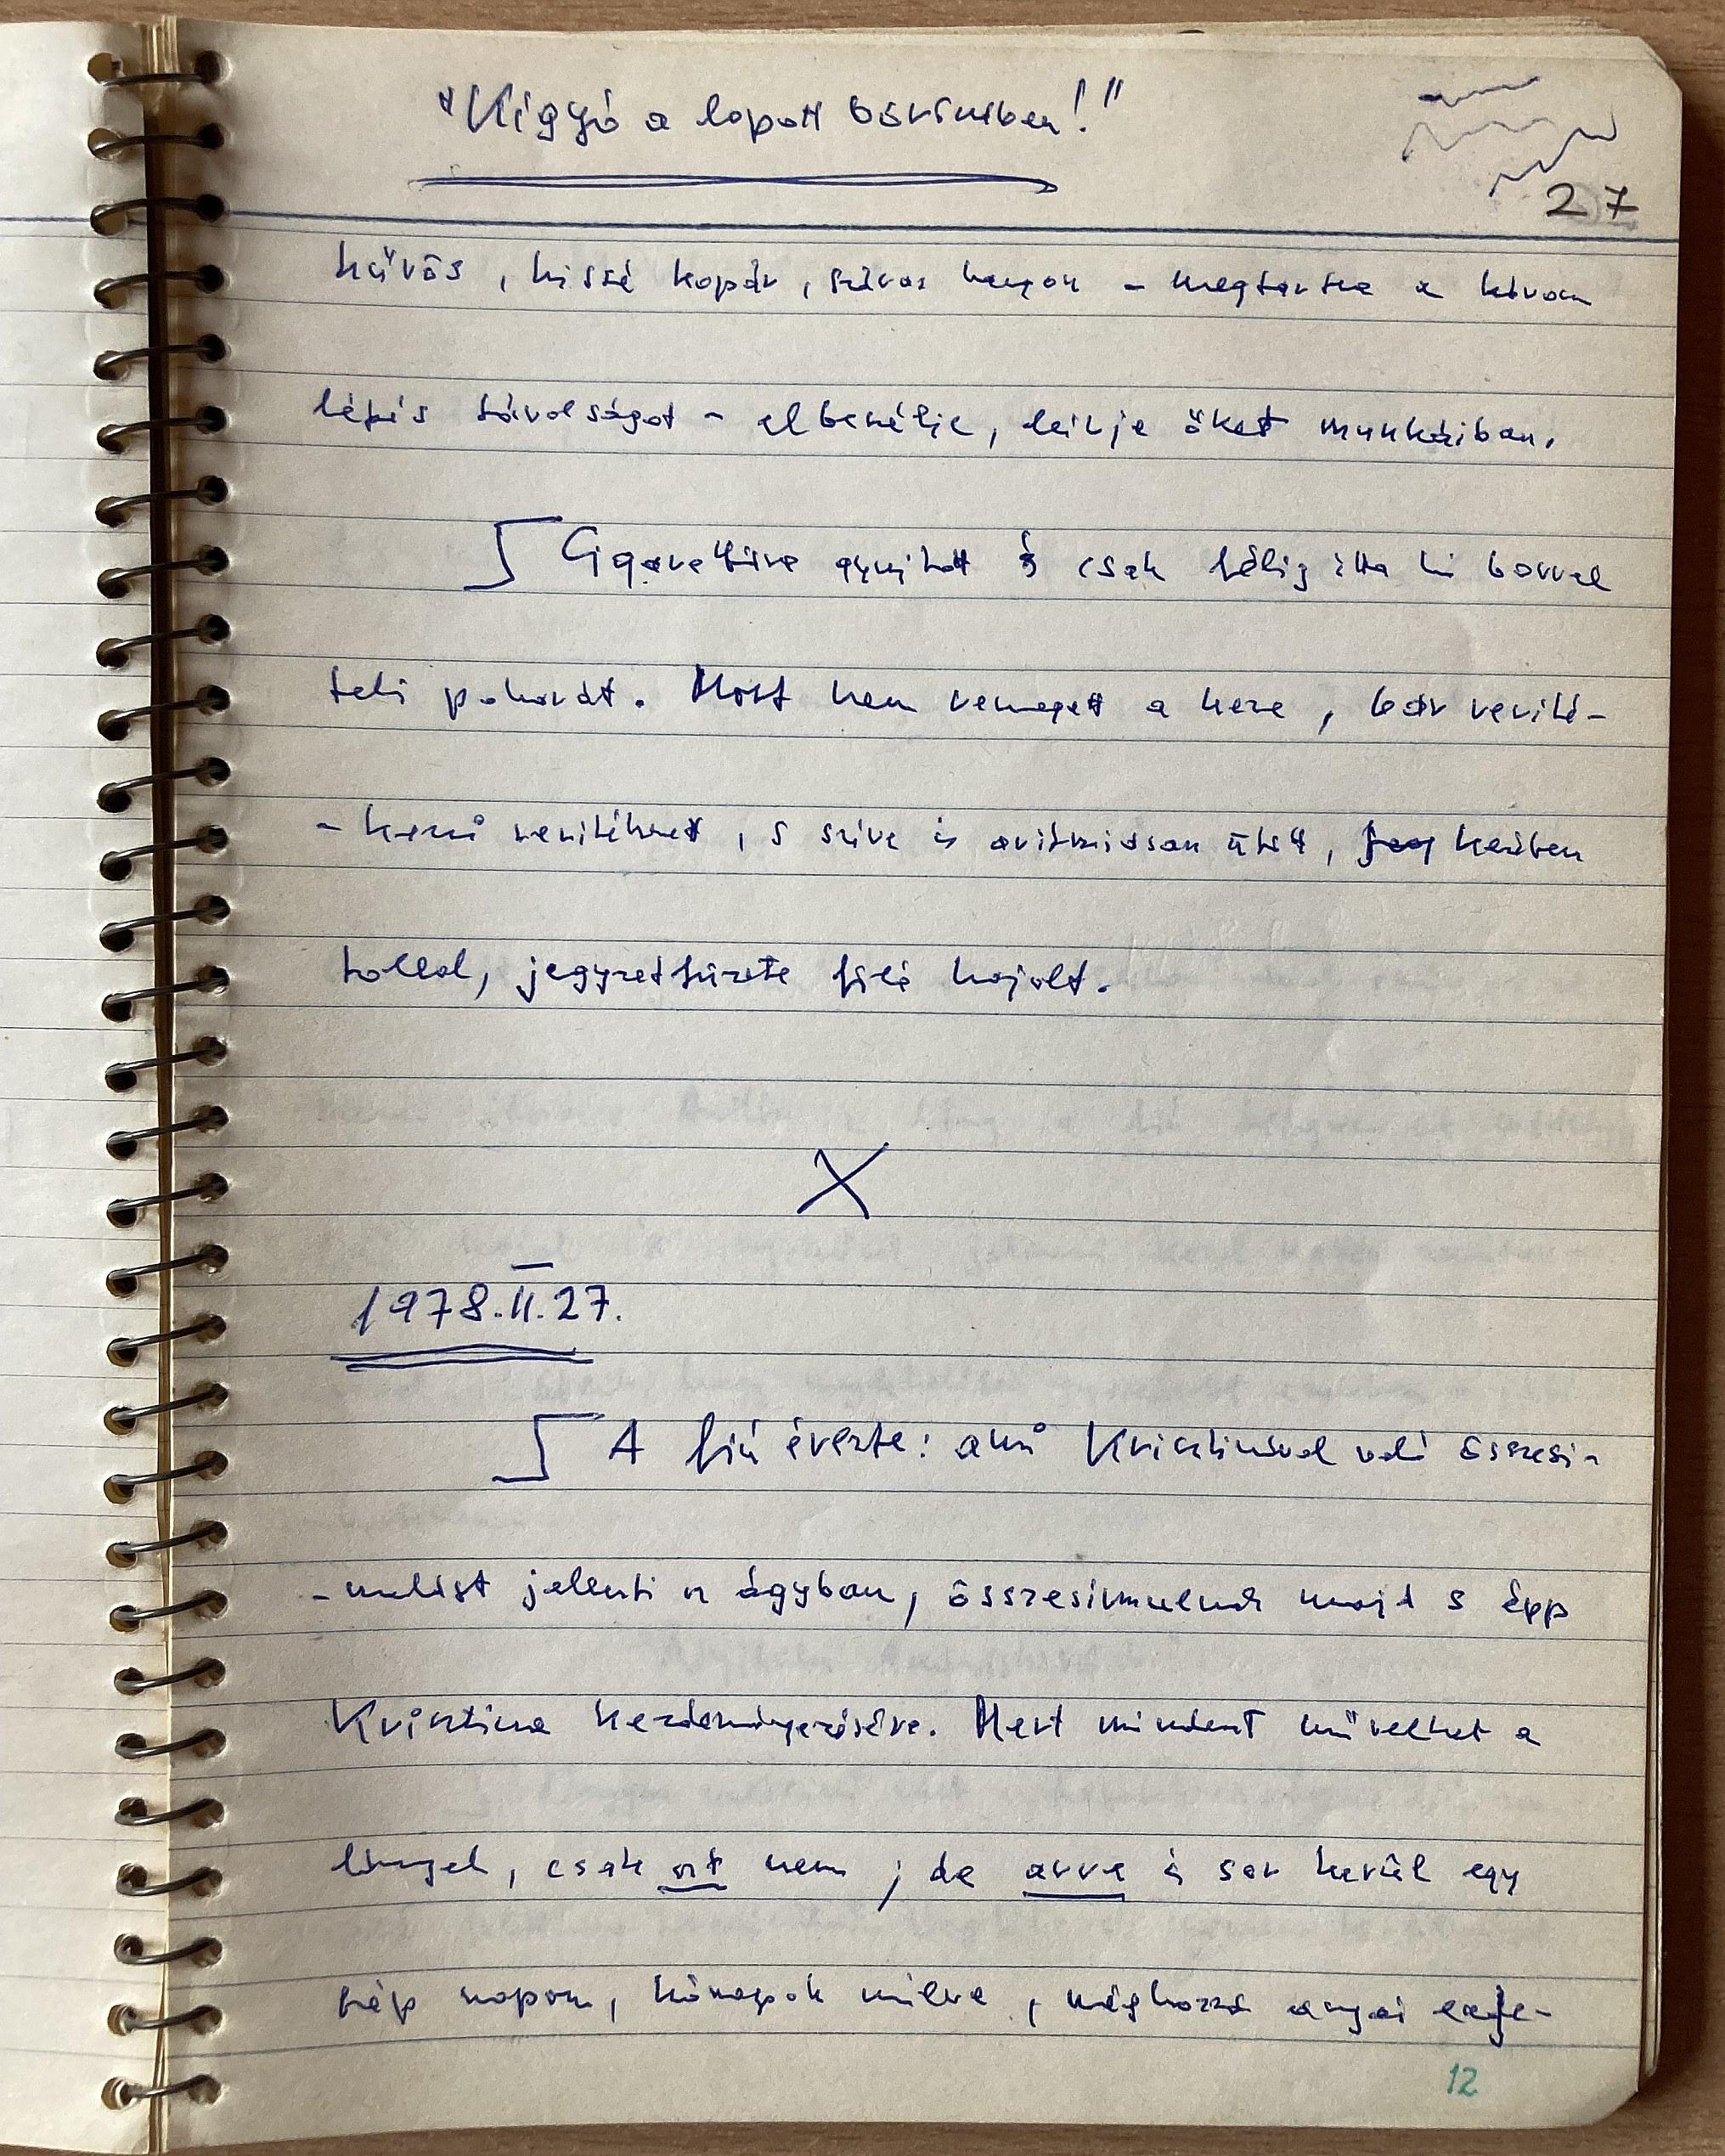 "Kígyó a lopott bőrömben!"
27
hűvös, kissé kopár, száraz hangon – megtartva a három
lépés távolságot – elbeszélje, leírja őket munkáiban.
Cigarettára gyújtott s csak félig itta ki borral
teli poharát. Most nem remegett a keze, bár verité-
- kezni veritékezett, s szíve is aritmiásan ütött, kezében
tollal, jegyzetfüzete fölé hajolt.
X
1978.II.27.
A fiú érezte: ami Krisztinával való összesi-
- mulást jelenti az ágyban, összesimulnak majd s épp
Krisztina kezdeményezésére. Mert mindent művelhet a
lánnyal, csak azt nem; de arra is sor kerül egy
szép napon, hónapok múlva, méghozzá anyai enge-
12